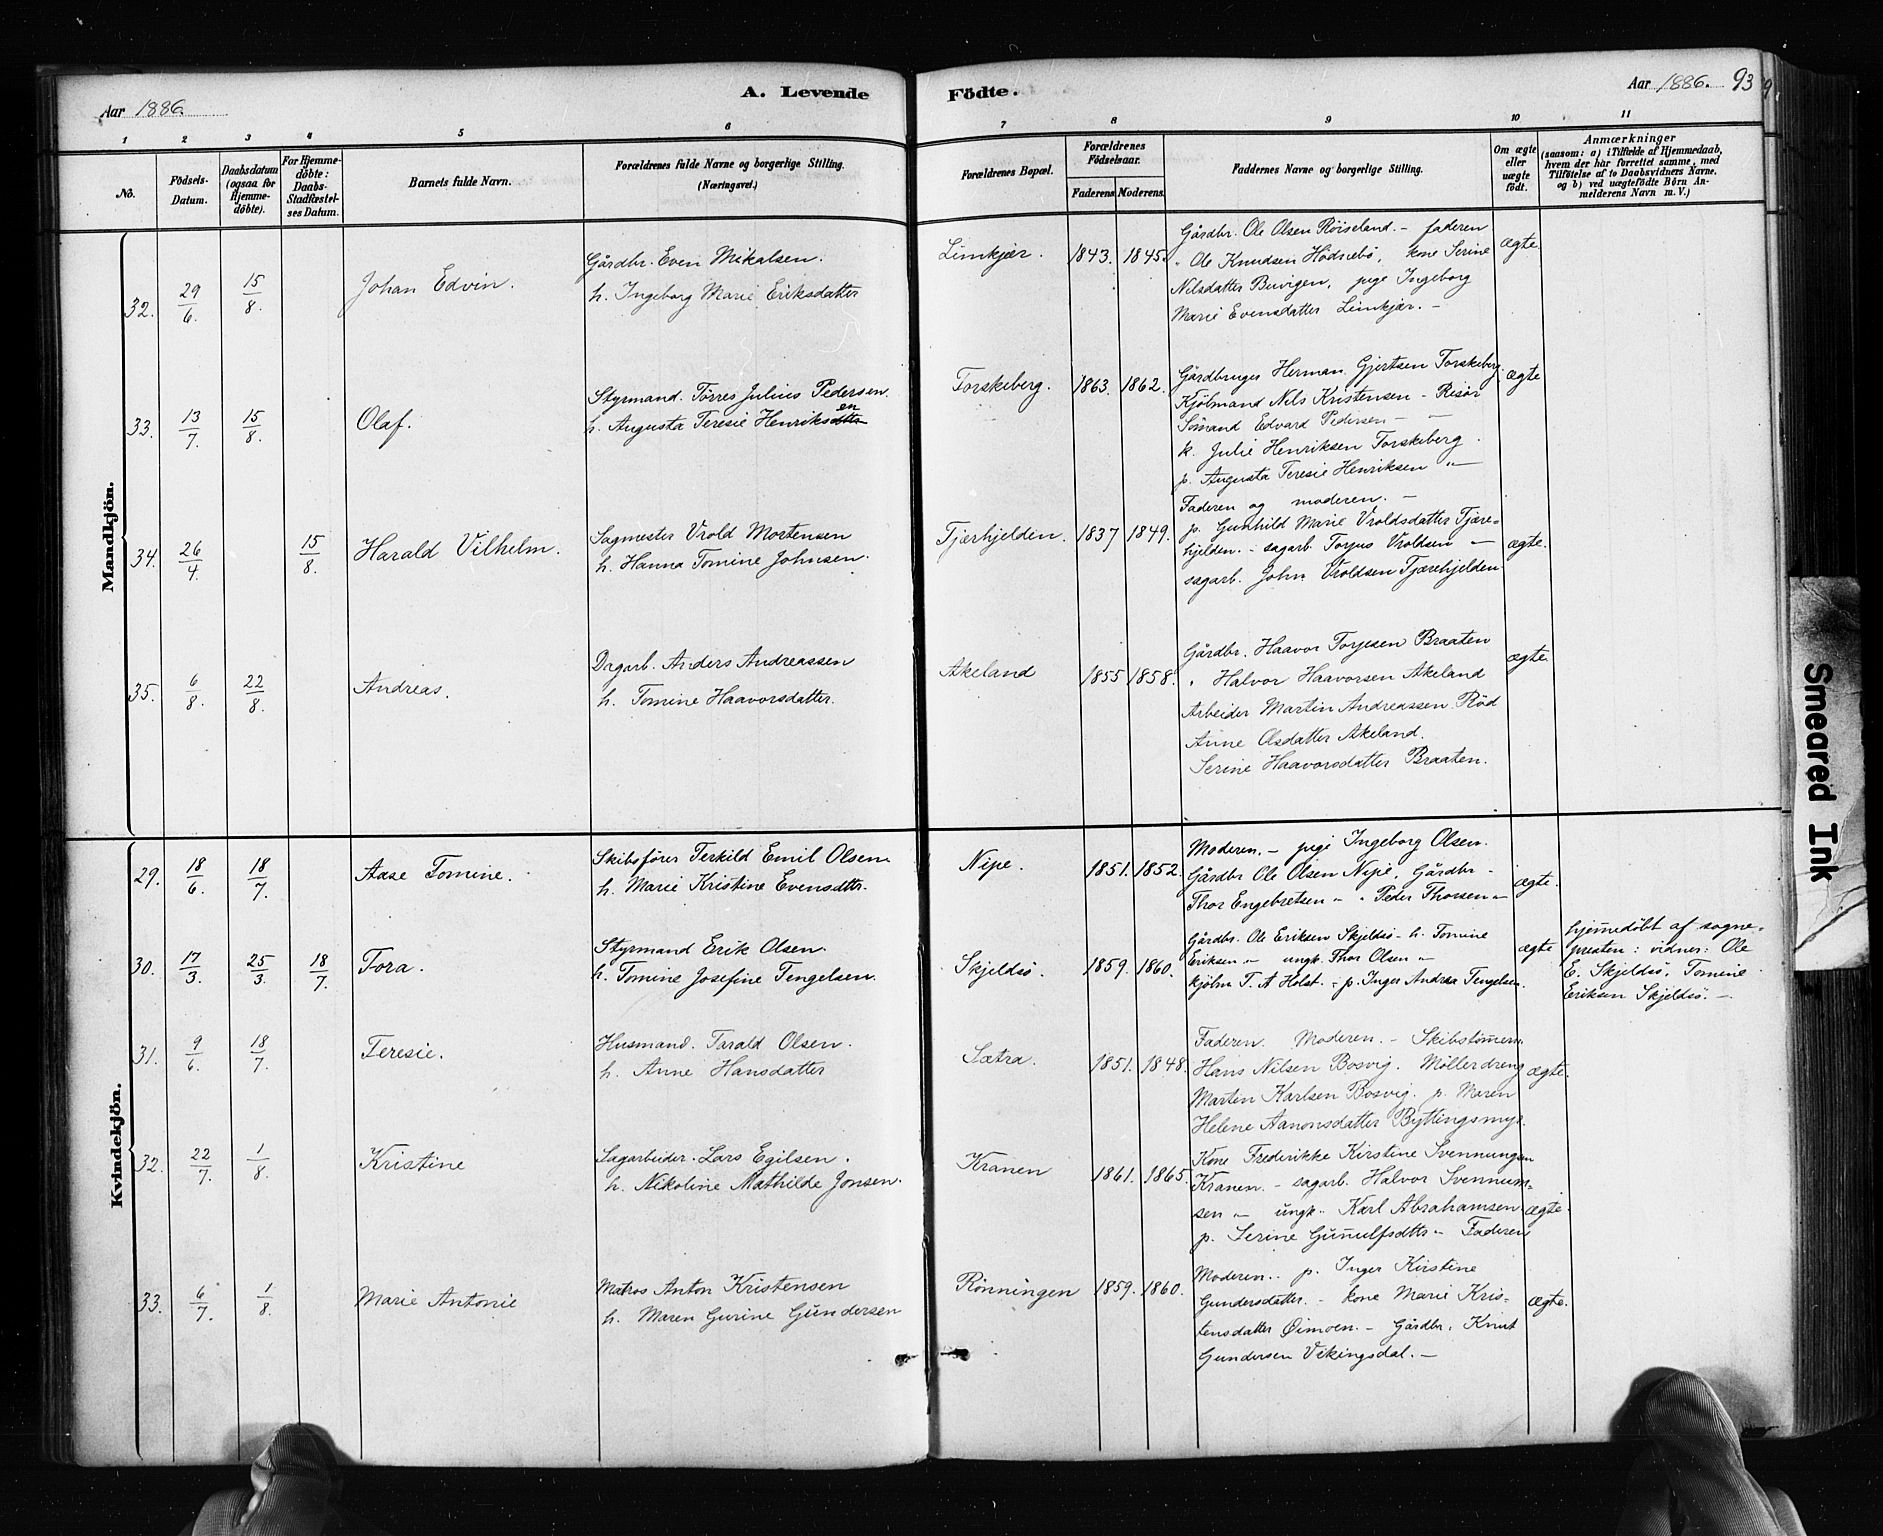 Aar 1886.
A. Levende
Födte.
Aar 1886. 93
1 2 3 4 5 6 7 8 9 10 11
No.
Födsels-
Datum.
Daabsdatum
(ogsaa for
Hjemme-
döbte).
For Hjemme-
döbte:
Daabs-
Stadfæstel-
ses Datum.
Barnets fulde Navn.
Forældrenes fulde Navne og borgerlige Stilling.
(Næringsvei.)
Forældrenes Bopæl.
Forældrenes
Födselsaar.
Faderens. Moderens.
Faddernes Navne og borgerlige Stilling.
Om ægte
eller
uægte
födt.
Anmærkninger
(saasom: a) i Tilfælde af Hjemmedaab,
hvem der har forrettet samme, med
Tilföielse af to Daabsvidners Navne,
og b) ved uægtefödte Börn An-
melderens Navn m. V.)
Mandkjön.
32. 29/6. 15/8. Johan Edvin.
Gårdbr. Even Mikalsen.
h. Ingeborg Marie Eriksdatter
Limkjær. 1843. 1845.
Gårdbr. Ole Olsen Röiseland. - faderen
" Ole Knudsen Hödnebö, kone Serine
Nilsdatter Buvigen, pige Ingeborg
Marie Evensdatter Limkjær. -
ægte.
33. 13/7. 15/8. Olaf.
Styrmand. Törres Julius Pedersen.
h. Augusta Teresie Henriksdtter en
Torskeberg. 1863. 1862.
Gårdbruger Herman Gjertsen Torskeberg.
Kjöbmand Nils Kristensen - Risör
Sömand Edvard Pedersen - -
k. Julie Henriksen Torskeberg.
p. Augusta Teresie Henriksen "-
Faderen og moderen. -
ægte
34. 26/4 15/8. Harald Vilhelm.
Sagmester Vrold Mortensen
h. Hanna Tomine Johnsen.
Tjærhjelden. 1837 1849.
p. Gunhild Marie Vroldsdatter Tjære-
hjelden. - sagarb. Torjus Vroldsen -
sagarb. John Vroldsen Tjærehjelden.
ægte.
35. 6/8. 22/8. Andreas.
Dagarb. Anders Andreassen
h. Tomine Haavorsdatter.
Akeland 1855 1858.
Gårdbr. Haavor Torjesen Braaten
" Halvor Haavorsen Akeland
Arbeider Martin Andreassen Röd
Anne Olsdatter Akeland.
Serine Haavorsdatter Braaten.
ægte.
Kvindekjön.
29. 18/6. 18/7. Aase Tomine.
Skibsförer Terkild Emil Olsen.
h. Marie Kristine Evensdttr.
Nipe. 1851. 1852.
Moderen. - pige Ingeborg Olsen.
Gårdbr Ole Olsen Nipe, Gårdbr -
Thor Engebretsen " " Peder Thorsen "
ægte.
30. 17/3. 25/3. 18/7. Tora.
Styrmand Erik Olsen.
h. Tomine Josefine Tengelsen.
Skjeldsö. 1859. 1860.
Gårdbr. Ole Eriksen Skjeldsö - h. Tomine
Eriksen "- ungk. Thor Olsen "-
kjöbm T. A Holst. - p. Inger Andrea Tengelsen.
ægte
hjemmedöbt af sogne-
presten: vidner: Ole
E. Skjeldsö, Tomine
Eriksen Skjeldsö. -
31. 9/6. 18/7. Teresie.
Husmand. Tarald Olsen.
h. Anne Hansdatter
Sætra. 1851. 1848.
Faderen. Moderen. - Skibstömm.
Hans Nilsen Bosvig. Möllerdreng
Martin Karlsen Bosvig. p. Maren
Helene Aanonsdatter Byttingsmyr.
ægte.
32. 22/7. 1/8. Kristine
Sagarbeider. Lars Egilsen.
h. Nikoline Mathilde Jonsen.
Kranen 1861. 1865.
Kone Frederikke Kirstine Svennungsen
Kranen. - sagarb. Halvor Svennum-
sen " ungk. Karl Abrahamsen
p. Serine Gunnulfsdttr - Faderen
ægte.
33. 6/7. 1/8. Marie Antonie
Matros Anton Kristensen
h. Maren Gurine Gundersen
Rönningen 1859. 1860.
Moderen.. p. Inger Kirstine
Gundersdatter. - kone Marie Kris-
tensdatter Öimoen. - Gårdbr. Knut
Gundersen Vikingsdal. -
ægte.
Smeared Ink